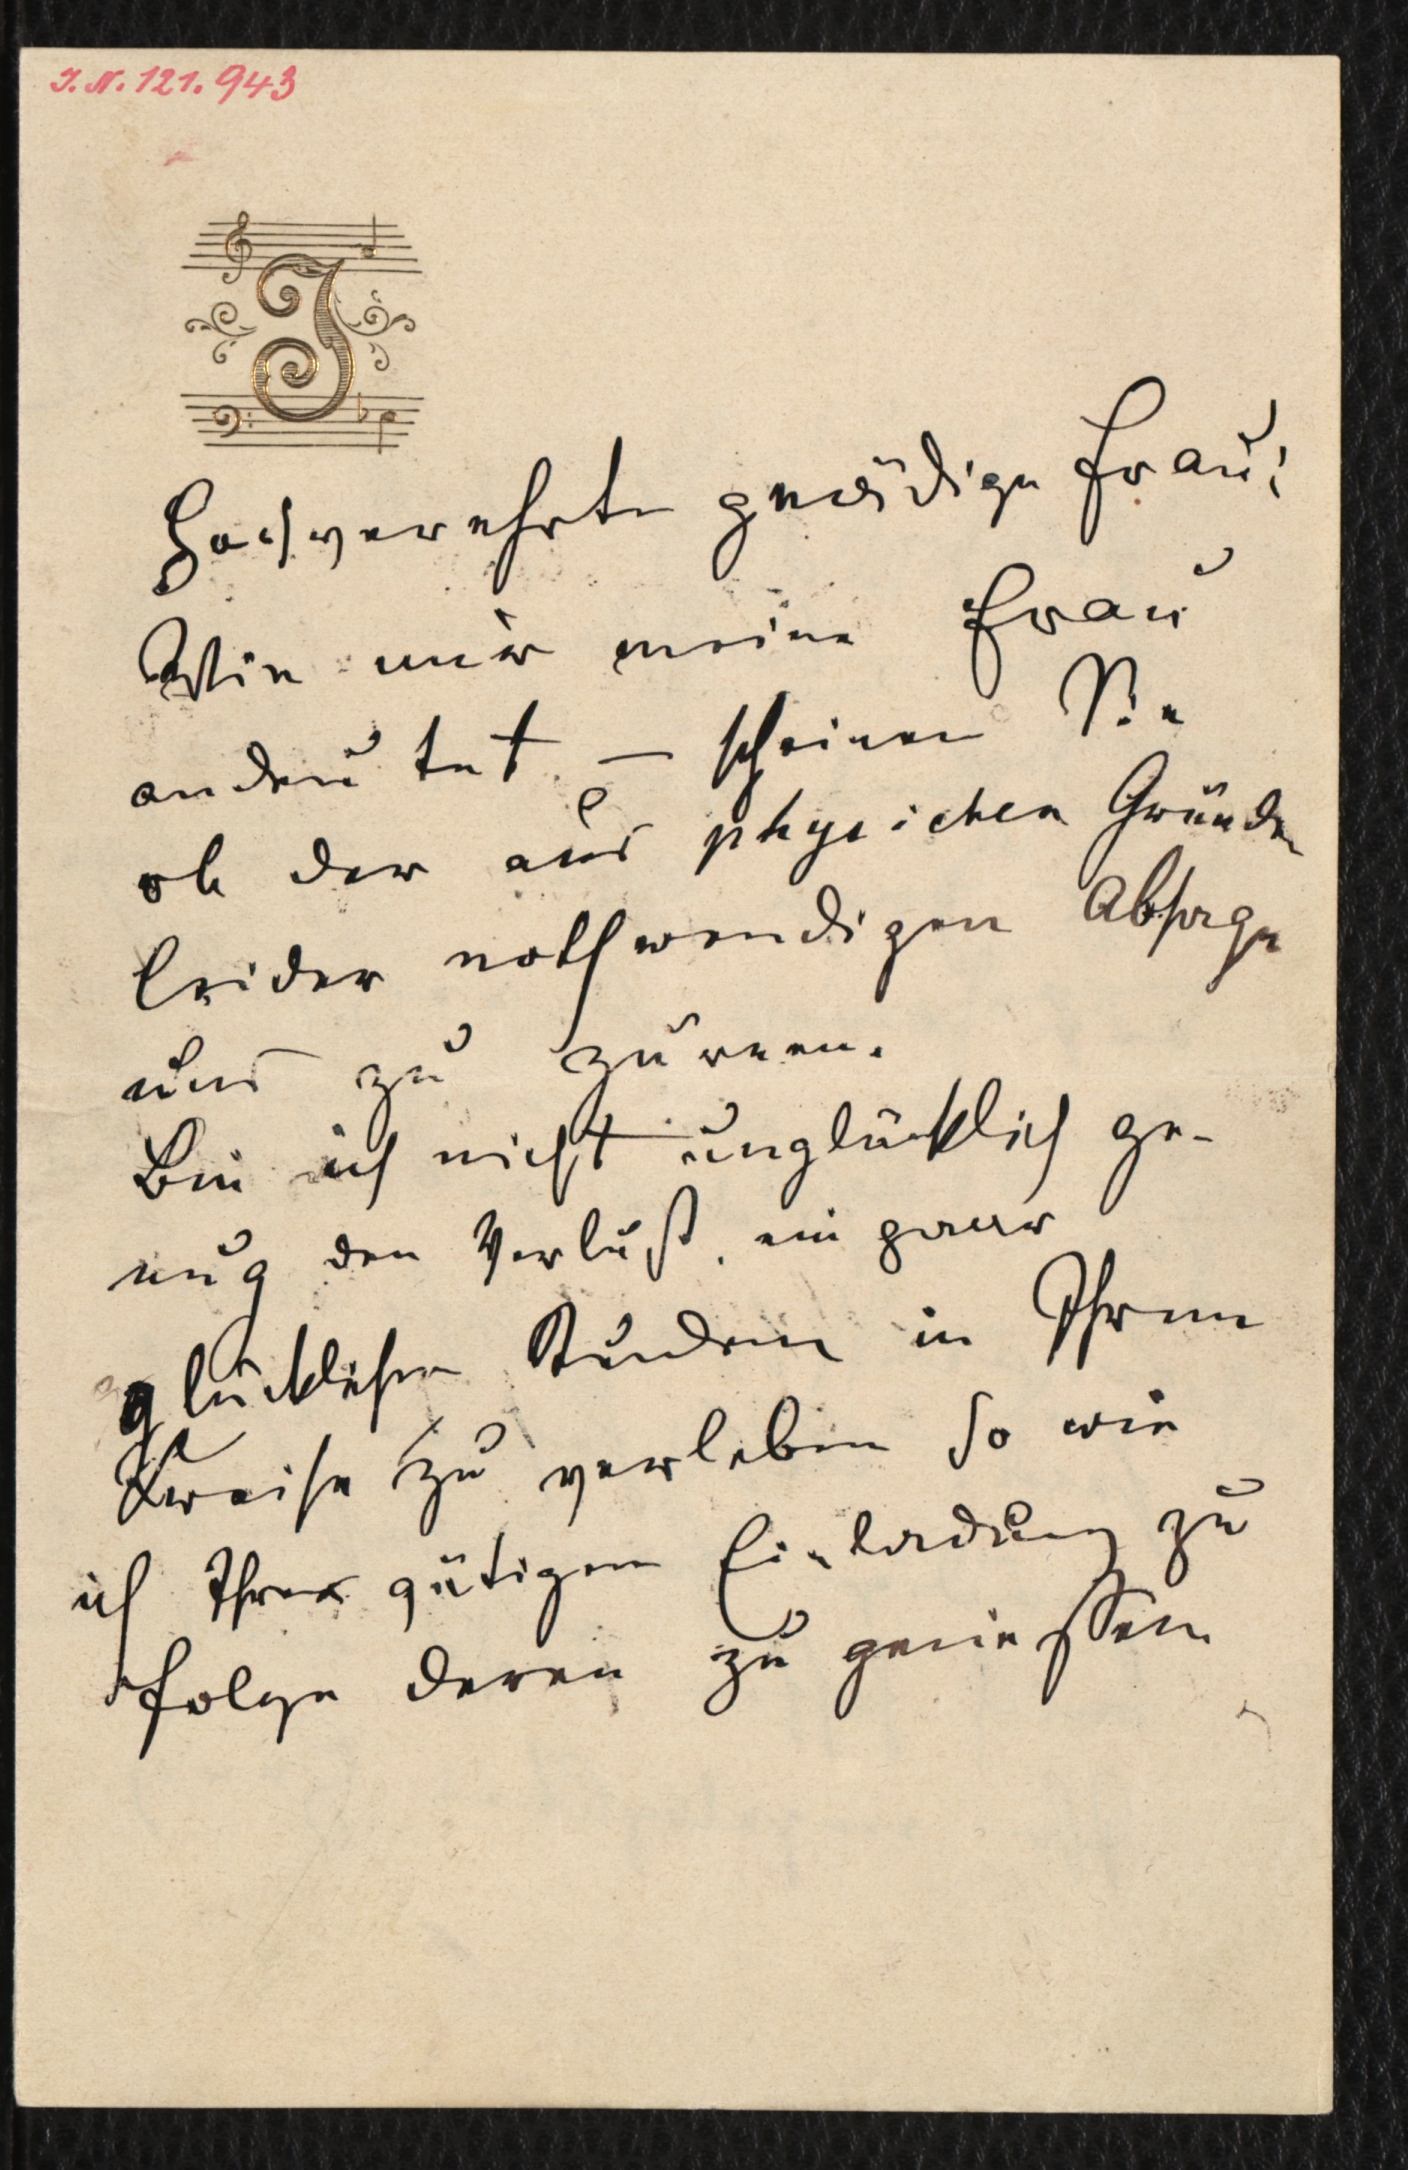 I.N. 121.943
J
Hochverehrte gnädige Frau!
Wie mir meine Frau
andeutet – scheinen Sie
ob der aus physichen Gründen
leider nothwendigen Absage
uns zu zürnen.
Bin ich nicht unglücklich ge-
nug den Verlust, ein paar
glücklichen Stunden in Ihrem
Kreise zu verleben so wie
ich Ihrer gütigen Einladung zu
folge deren zu geniessen